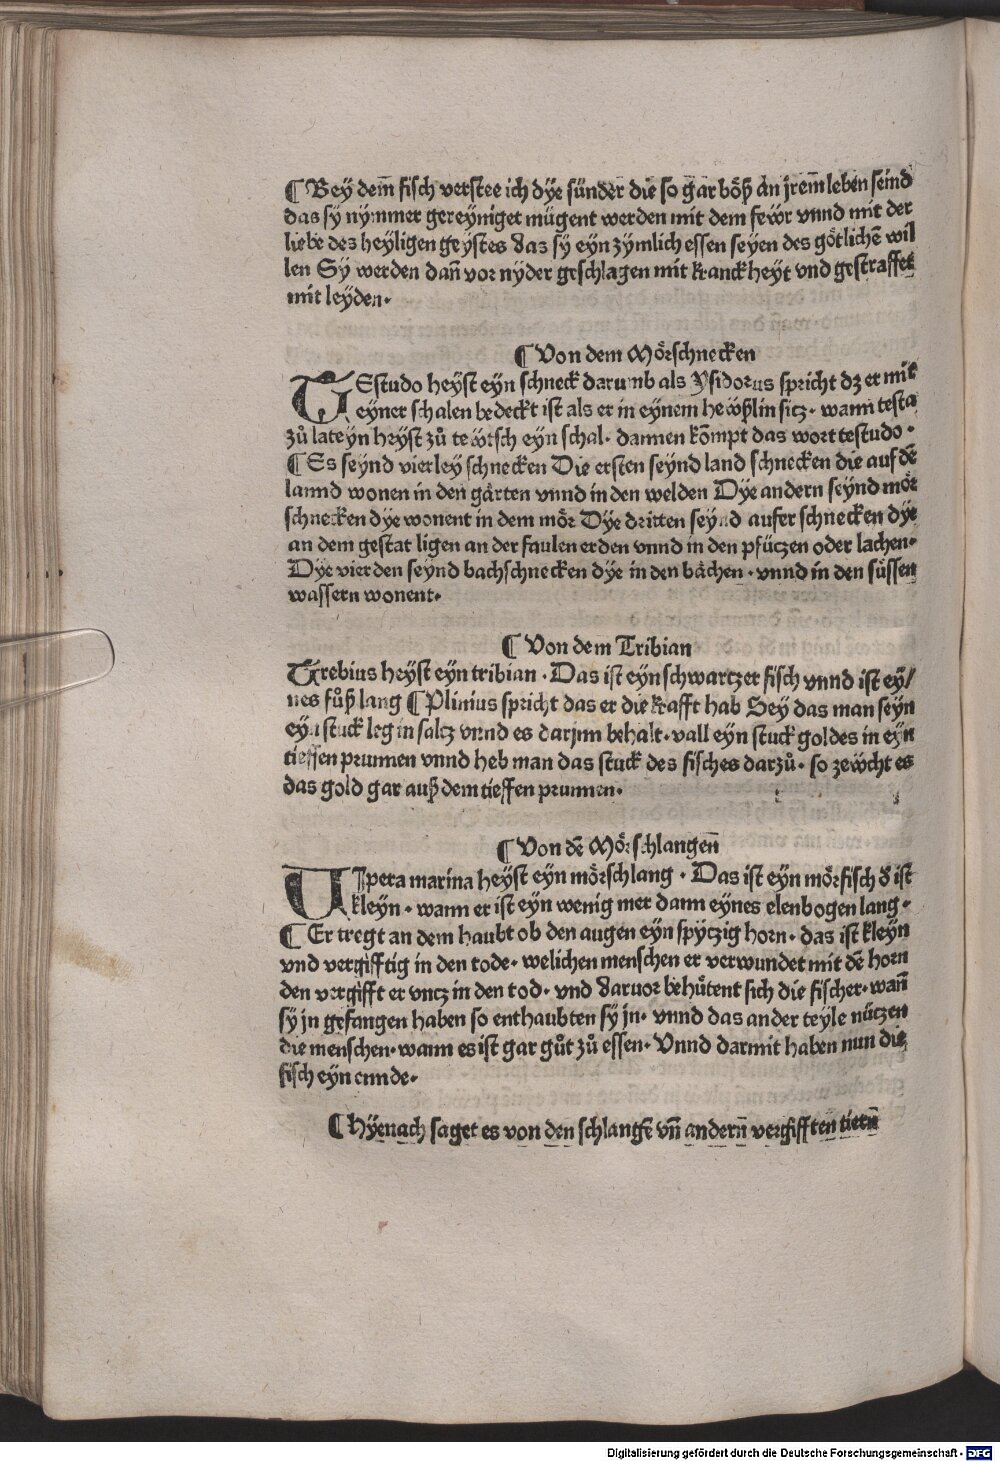 ¶ Bey dem̄ fisch verstee ich dÿe sünder die so gar böß an jrem̄ leben seind
das sÿ nÿmmer gereÿniget mügent werden mit dem fewr vnnd mit der
liebe des heÿligen geÿstes das sÿ eÿn zÿmlich essen seyen des götlichē wil
len Sÿ werden dan̄ vor nÿder geschlagen mit kranckheÿt vnd gestraffet
mit leyden·
¶ Von dem Mörschnecken
TEstudo heÿst eÿn schneck darumb als Ysidorus spricht dz er mit
eÿner schalen bedeckt ist als er in eÿnem hewßlin sitz· wann testa
zů lateÿn heÿst zů tewtsch eÿn schal· dannen kōmpt das wort testudo·
¶ Es seÿnd vierley schnecken Die ersten seÿnd land schnecken die auf dē
lannd wonen in den gärten vnnd in den welden Dÿe andern seÿnd mör
schnecken dÿe wonent in dem mör Dÿe dritten seÿnd aufer schnecken dÿe
an dem gestat ligen an der faulen erden vnnd in den pfüczen oder lachen·
Dÿe vierden seÿnd bachschnecken dÿe in den bächen· vnnd in den süssen
wassern wonent·
¶ Von dem Tribian
Trebius heÿst eÿn tribian· Das ist eÿn schwartzer fisch vnnd ist eÿ/
nes fůß lang ¶ Plinius spricht das er die krafft hab Seÿ das man seÿn
eÿn stuck leg in saltz vnnd es darjnn behalt· vall eÿn stuck goldes in eÿn
tieffen prunnen vnnd heb man das stuck des fisches darzů· so zewcht es
das gold gar auß dem tieffen prunnen·
¶ Von dē Mörschlangen̄
VIpera marina heÿst eÿn mörschlang· Das ist eÿn mörfisch d̄ ist
kleÿn· wann er ist eÿn wenig mer dann eÿnes elenbogen lang·
¶ Er tregt an dem haubt ob den augen eÿn spÿczig horn· das ist kleÿn
vnd vergifftig in den tode· welichen menschen er verwundet mit dē horn
den vergifft er vncz in den tod· vnd daruor behütent sich die fischer· wan̄
sÿ jn gefangen haben so enthaubten sÿ jn· vnnd das ander teÿle nüczen
die menschen· wann es ist gar gůt zů essen· Vnnd darmit haben nun die
fisch eÿn ennde·
¶ Hÿenach saget es von den schlangē vn̄ andern̄ vergifften tieren̄
Digitalisierung gefördert durch die Deutsche Forschungsgemeinschaft - DFG